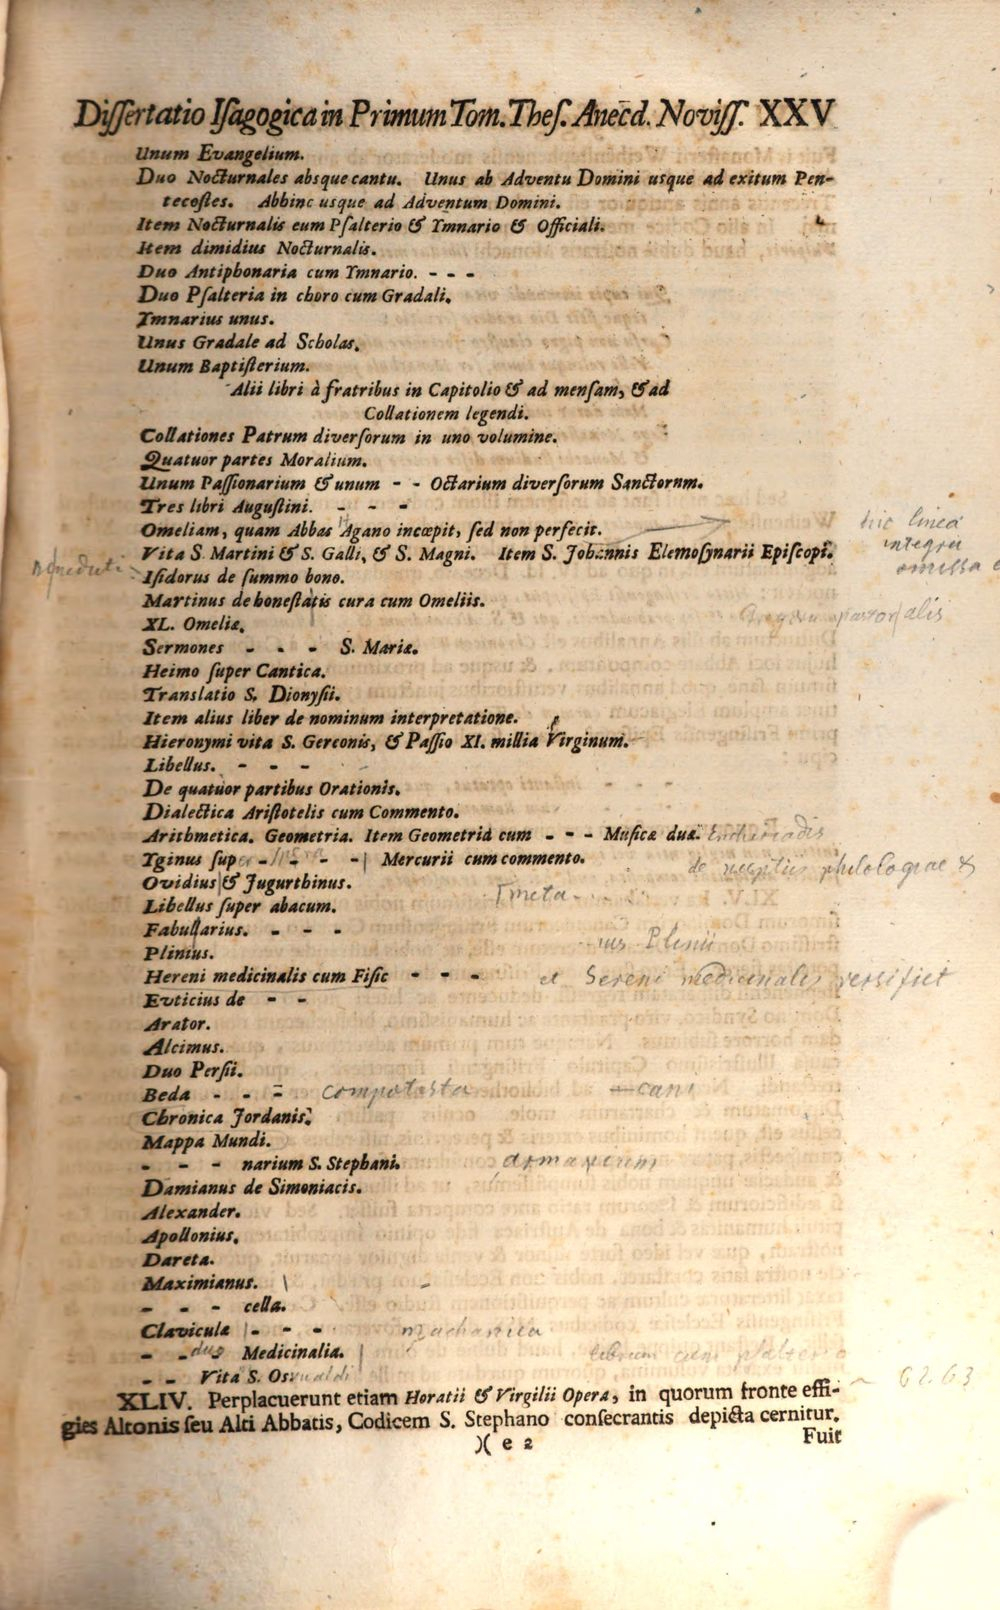 Dissertatio Isagogica in Primum Tom. Thes. Anecd. Noviss. XXV
Unum Evangelium.
Duo Nocturnales absque cantu. Unus ab Adventu Domini usque ad exitum Pen-
tecostes. Abbinc usque ad Adventum Domini.
Item Nocturnalis eum Psalterio & Ymnario & Officiali.
Item dimidius Nocturnalis.
Duo Antiphonaria cum Ymnario. - - -
Duo Psalteria in choro cum Gradali.
Ymnarius unus.
Unus Gradale ad Scholas.
Unum Baptisterium.
Alii libri à fratribus in Capitolio & ad mensam, & ad
Collationem legendi.
Collationes Patrum diversorum in uno volumine.
Quatuor partes Moralium.
Unum Passionarium & unum - - Octarium diversorum Sanctorum.
Tres libri Augustini. - - -
Omeliam, quam Abbas Agano incœpit, sed non perfecit. hic linea
integra
omissa e
Vita S. Martini & S. Galli, & S. Magni. Item S. Johannis Elemosynarii Episcopi.
Benedicti
Isidorus de summo bono.
Martinus de honestatis cura cum Omeliis.
pastoralis
XL. Omeliæ.
Sermones - - - S. Mariæ.
Heimo super Cantica.
Translatio S. Dionysii.
Item alius liber de nominum interpretatione.
Hieronymi vita S. Gerconis, & Passio XI. millia Virginum.
Libellus. - - -
De quatuor partibus Orationis.
Dialectica Aristotelis cum Commento.
Arithmetica. Geometria. Item Geometria cum - - - Musicæ duæ. Enchiriadis
Yginus super - - - - Mercurii cum commento.
de nuptiis philologiae &
Ovidius & Jugurthinus.
Libellus super abacum.
Fabullarius. - - -
Plinius.
ius Plinii
Hereni medicinalis cum Fisic - - - et Sereni medicinalis versifiet
Euticius de - -
Arator.
Alcimus.
Duo Persii.
Beda - - - compotista cani
Chronica Jordanis.
Mappa Mundi.
- - - narium S. Stephani. armarium
Damianus de Simoniacis.
Alexander.
Apollonius.
Dareta.
Maximianus.
- - - cella.
Clavicula - - - machanica
- - duo Medicinalia. librum cum psalterio
- - Vita S. Osvualdi 62. 63
XLIV. Perplacuerunt etiam Horatii & Virgilii Opera, in quorum fronte effi-
gies Altonis seu Alti Abbatis, Codicem S. Stephano consecrantis depicta cernitur.
)( e 2 Fuit